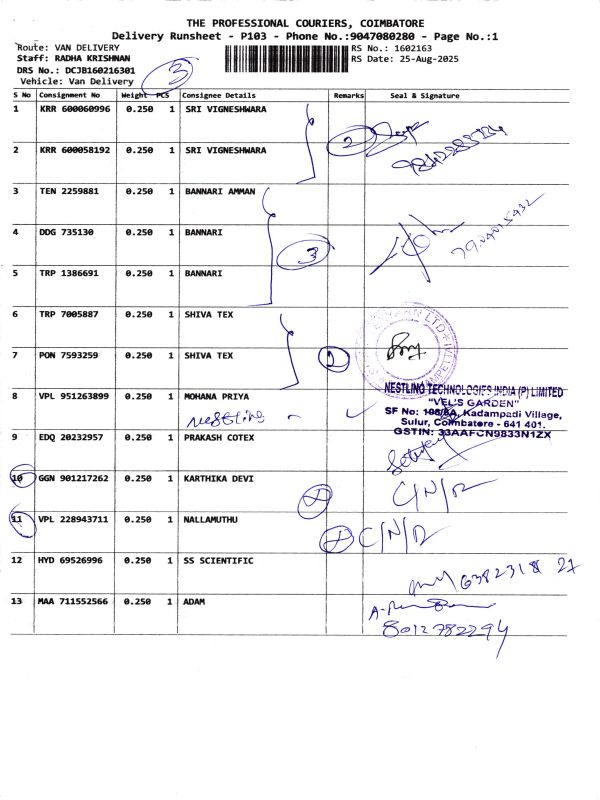 THE PROFESSIONAL COURIERS, COIMBATORE
Delivery Runsheet - P103 - Phone No.:9047080280 - Page No.:1
Route: VAN DELIVERY
RS No.: 1602163
Staff: RADHA KRISHNAN
RS Date: 25-Aug-2025
DRS No.: DCJB160216301
Vehicle: Van Delivery
3
S No Consignment No Weight PCS Consignee Details Remarks Seal & Signature
1 KRR 600060996 0.250 1 SRI VIGNESHWARA
2
2 KRR 600058192 0.250 1 SRI VIGNESHWARA
3 TEN 2259881 0.250 1 BANNARI AMMAN
4 DDG 735130 0.250 1 BANNARI
3
5 TRP 1386691 0.250 1 BANNARI
6 TRP 7005887 0.250 1 SHIVA TEX
7 PON 7593259 0.250 1 SHIVA TEX
2
8 VPL 951263899 0.250 1 MOHANA PRIYA
Nestling
NESTLING TECHNOLOGIES INDIA (P) LIMITED
"VEL'S GARDEN"
SF No: Kadampadi Village,
Sulur, Coimbatore - 641 401.
GSTIN: 33AAFCN9833N1ZX
9 EDQ 20232957 0.250 1 PRAKASH COTEX
10 GGN 901217262 0.250 1 KARTHIKA DEVI
C/N/R
11 VPL 228943711 0.250 1 NALLAMUTHU
C/N/R
12 HYD 69526996 0.250 1 SS SCIENTIFIC
6382318 27
13 MAA 711552566 0.250 1 ADAM
8012782294